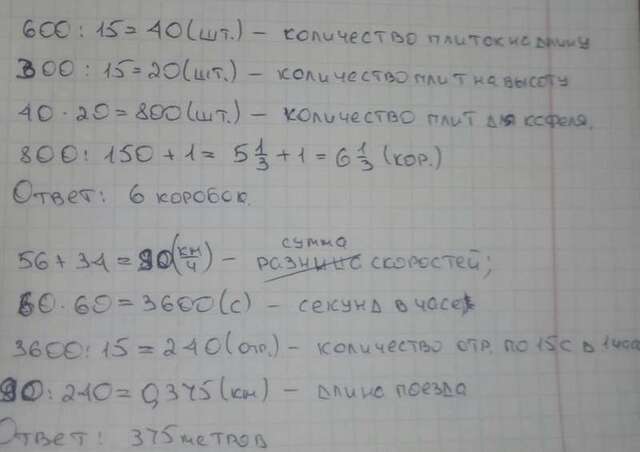 600 : 15 = 40 (шт.) – количество плиток на длину
300 : 15 = 20 (шт.) – количество плит на высоту
40 · 20 = 800 (шт.) – количество плит для кафеля.
800 : 150 + 1 = 5 1/3 + 1 = 6 1/3 (кор.)
Ответ: 6 коробок.
56 + 34 = 90 (км/ч) – сумма скоростей;
60 · 60 = 3600 (с) – секунд в часе
3600 : 15 = 240 (отр.) – количество отр. по 15с в 1 часе
90 : 240 = 0,375 (км) – длина поезда
Ответ: 375 метров